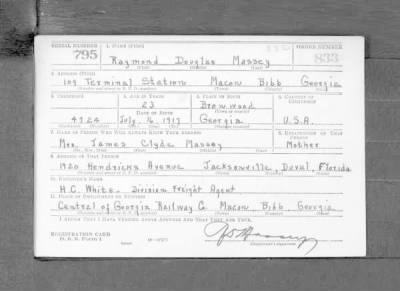 SERIAL NUMBER 1. NAME (Print) ORDER NUMBER
795 Raymond Douglas Massey 833
(First) (Middle) (Last)
2. ADDRESS (Print)
109 Terminal Station Macon Bibb Georgia
3. TELEPHONE 4. AGE IN YEARS 5. PLACE OF BIRTH 6. COUNTRY OF CITIZENSHIP
23
DATE OF BIRTH
4124 July 16 1917 Georgia U.S.A.
7. NAME OF PERSON WHO WILL ALWAYS KNOW YOUR ADDRESS 8. RELATIONSHIP OF THAT PERSON
Mrs. James Clyde Massey Mother
(Mr., Mrs., Miss) (First) (Middle) (Last)
9. ADDRESS OF THAT PERSON
1920 Hendricks Avenue Jacksonville, Duval, Florida
10. EMPLOYER'S NAME
H.C. White - Division Freight Agent
11. PLACE OF EMPLOYMENT OR BUSINESS
Central of Georgia Railway Co Macon Bibb Georgia
I AFFIRM THAT I HAVE VERIFIED ABOVE ANSWERS AND THAT THEY ARE TRUE.
REGISTRATION CARD
D. S. S. Form 1
(Registrant's signature)